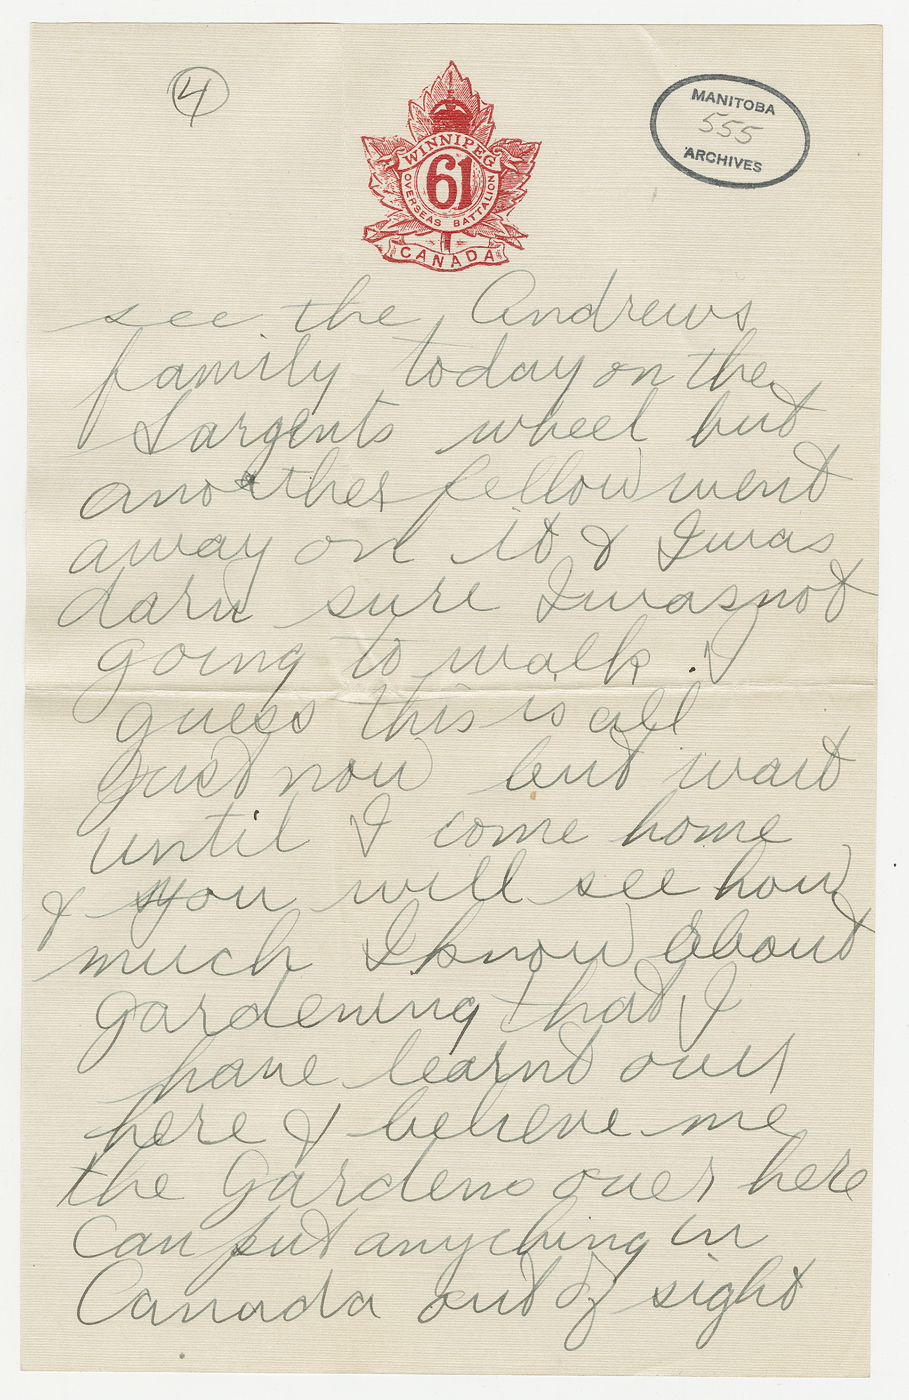 4
MANITOBA
555
ARCHIVES
WINNIPEG
61
OVERSEAS BATTALION
CANADA
see the Andrews
family today on the
Sargents wheel but
another fellow went
away on it & I was
darn sure I was not
going to walk. I
guess this is all
just now but wait
until I come home
& you will see how
much I know about
gardening that I
have learnt over
here & believe me
the Gardens over here
can put anything in
Canada out of sight